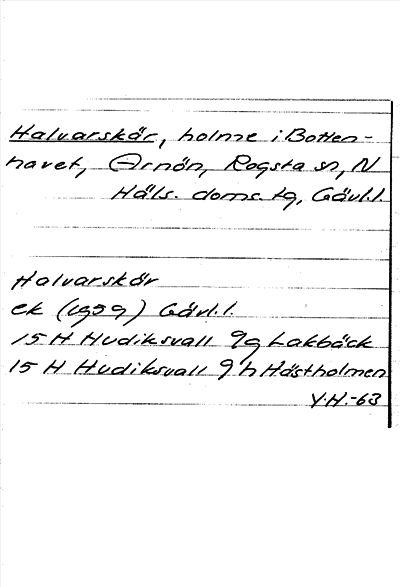 Halvarskär, holme i Botten-
havet, Arnön, Rogsta sn, N
Häls. doms. tg, Gävl.l.
Halvarskär
ek (1959) Gävl.l.
15 H Hudiksvall 9g Lakbäck
15 H Hudiksvall 9h Hästholmen
Y.H.-63